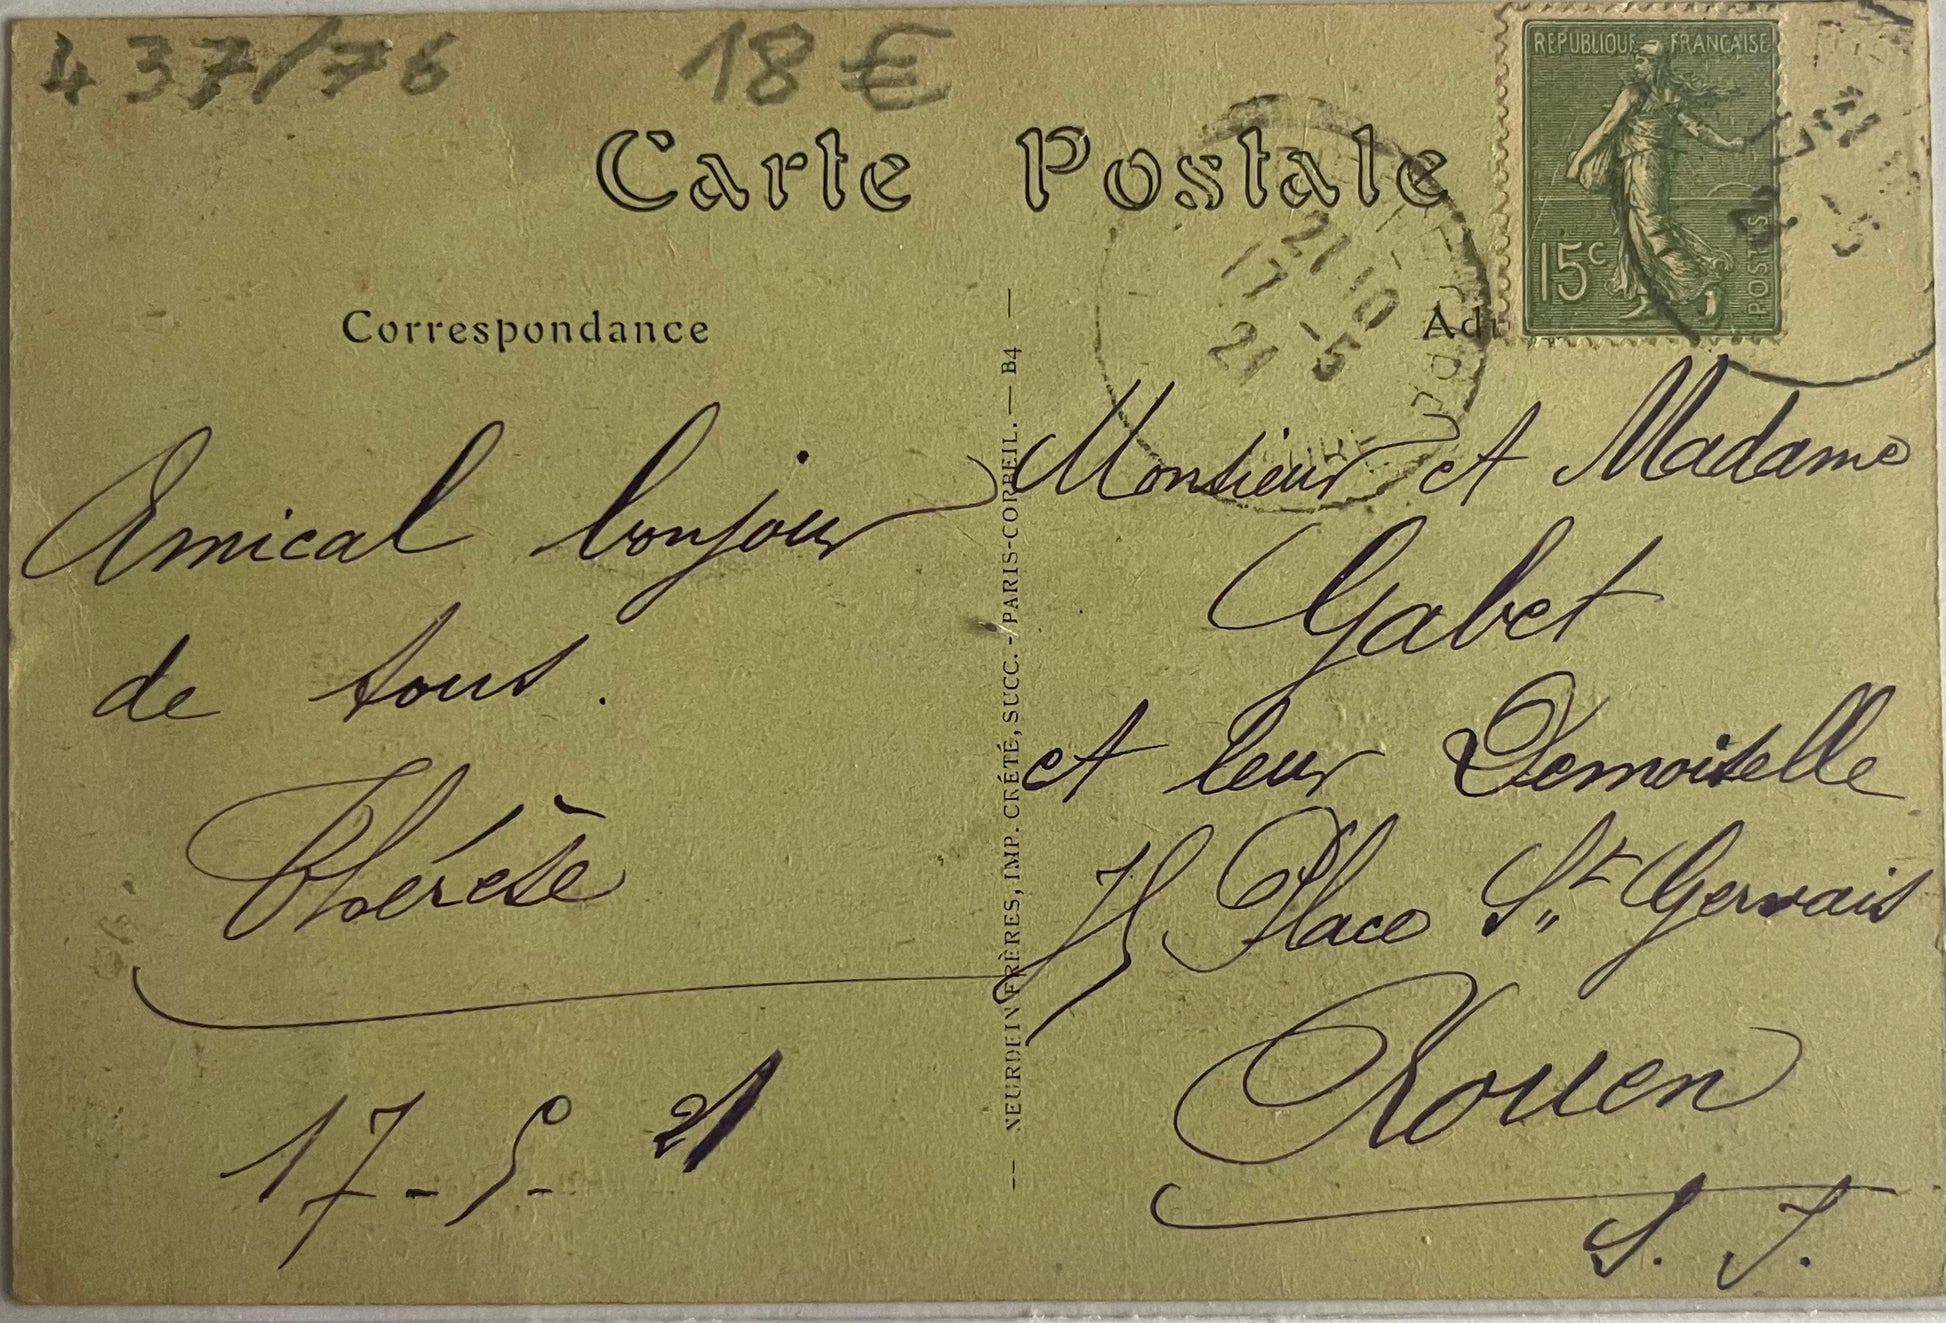 437/76 18 €
REPUBLIQUE FRANCAISE
15c
POSTES
Carte Postale
21 10
17 -5
21
Correspondance
Amical bonjour
de tous.
Thérèse
17-5-21
NEURDEIN FRÈRES, IMP. CRÉTÉ, SUCC. - PARIS-CORBEIL. — B4
Monsieur et Madame
Gabet
et leur Demoiselle
Place St Gervais
Rouen
S. I.